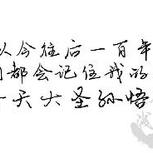 从今往后一百年
都会记住我的
天大圣孙悟